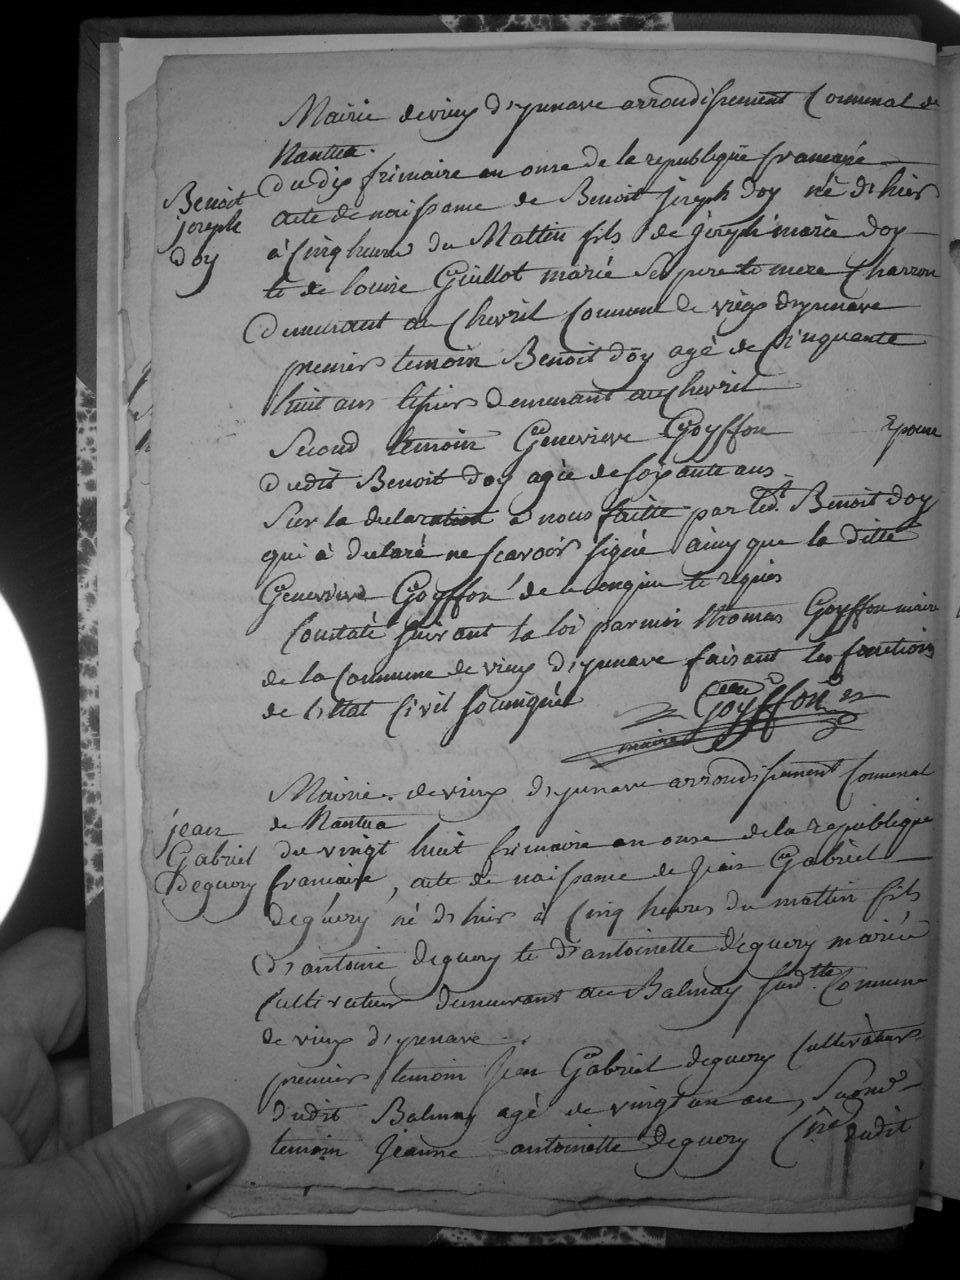 Mairie de vieux d'yzenave arrondissement Communal de
Nantua.
Benoit
joseph
doy
du dix frimaire an onze de la republique francaise
acte de naissance de Benoit joseph doy né d'hier
à Cinq heures du Mattin fils de joseph marie doy
te de louise Guillot marié ses pere te mere Charron
demeurant au Chevril Commune de vieux d'yzenave
premier temoin Benoit doy agé de Cinquante
huit ans demeurant au Chevril
Second temoin Genevieve Goyffon Epouse
dudit Benoit doy agée de soixante ans
Sur la declaration à nous faitte par led.t Benoit doy
qui à declaré ne scavoir signé ainsy que la ditte
Genevieve Goyffon de ce enquis te requis
Constaté suivant la loi par moi thomas Goyffon maire
de la Commune de vieux d'yzenave faisant les fonctions
de l'etat Civil soussigné
Goyffon
maire
Mairie de vieux d'yzenave arrondissement Communal
de Nantua
jean
Gabriel
Deguery
du vingt huit frimaire an onze de la republique
francaise, acte de naissance de Jean Gabriel
deguery né d'hier à Cinq heures du mattin fils
d'antoine deguery te d'antoinette deguery mariée
Cultivateur demeurant au Balmay susd.tte Commune
de vieux d'yzenave.
premier temoin Jean Gabriel deguery Cultivateur
dudit Balmay agé de vingt un an, Second
temoin Jeanne antoinette deguery dudit